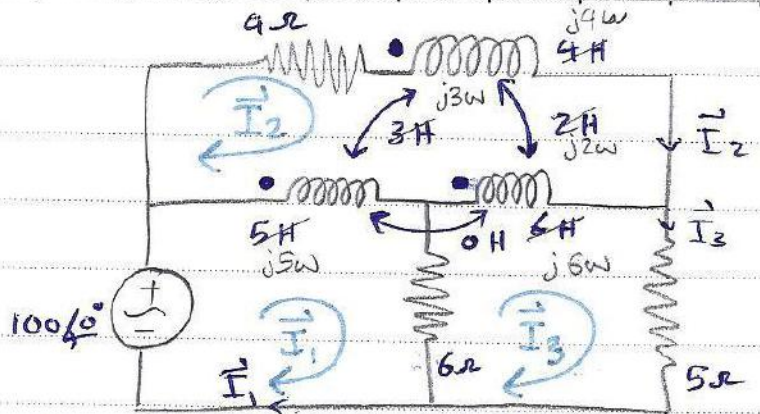 4Ω
j4ω
4H
j3ω
I₂
3H
2H
j2ω
I₂
5H
j5ω
0H
6H
j6ω
I₃
100∠0°
+
−
I₁
I₃
I₁
6Ω
5Ω